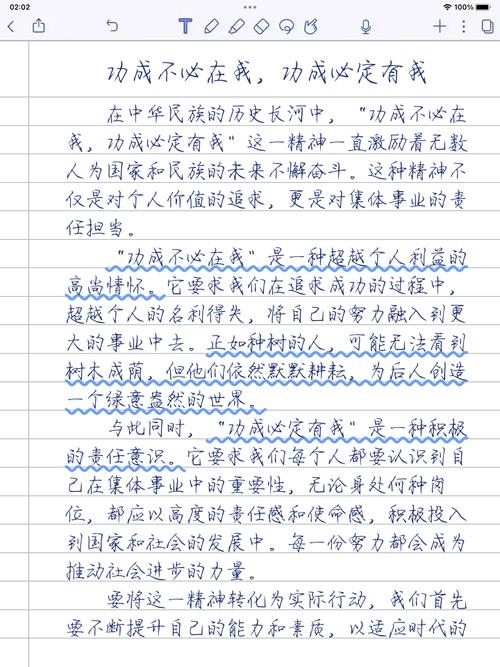 02:02
100%
功成不必在我，功成必定有我
在中华民族的历史长河中，“功成不必在
我，功成必定有我”这一精神一直激励着无数
人为国家和民族的未来不懈奋斗。这种精神不
仅是对个人价值的追求，更是对集体事业的责
任担当。
“功成不必在我”是一种超越个人利益的
高尚情怀。它要求我们在追求成功的过程中，
超越个人的名利得失，将自己的努力融入到更
大的事业中去。正如种树的人，可能无法看到
树木成荫，但他们依然默默耕耘，为后人创造
一个绿意盎然的世界。
与此同时，“功成必定有我”是一种积极
的责任意识。它要求我们每个人都要认识到自
己在集体事业中的重要性，无论身处何种岗
位，都应以高度的责任感和使命感，积极投入
到国家和社会的发展中。每一份努力都会成为
推动社会进步的力量。
要将这一精神转化为实际行动，我们首先
要不断提升自己的能力和素质，以适应时代的